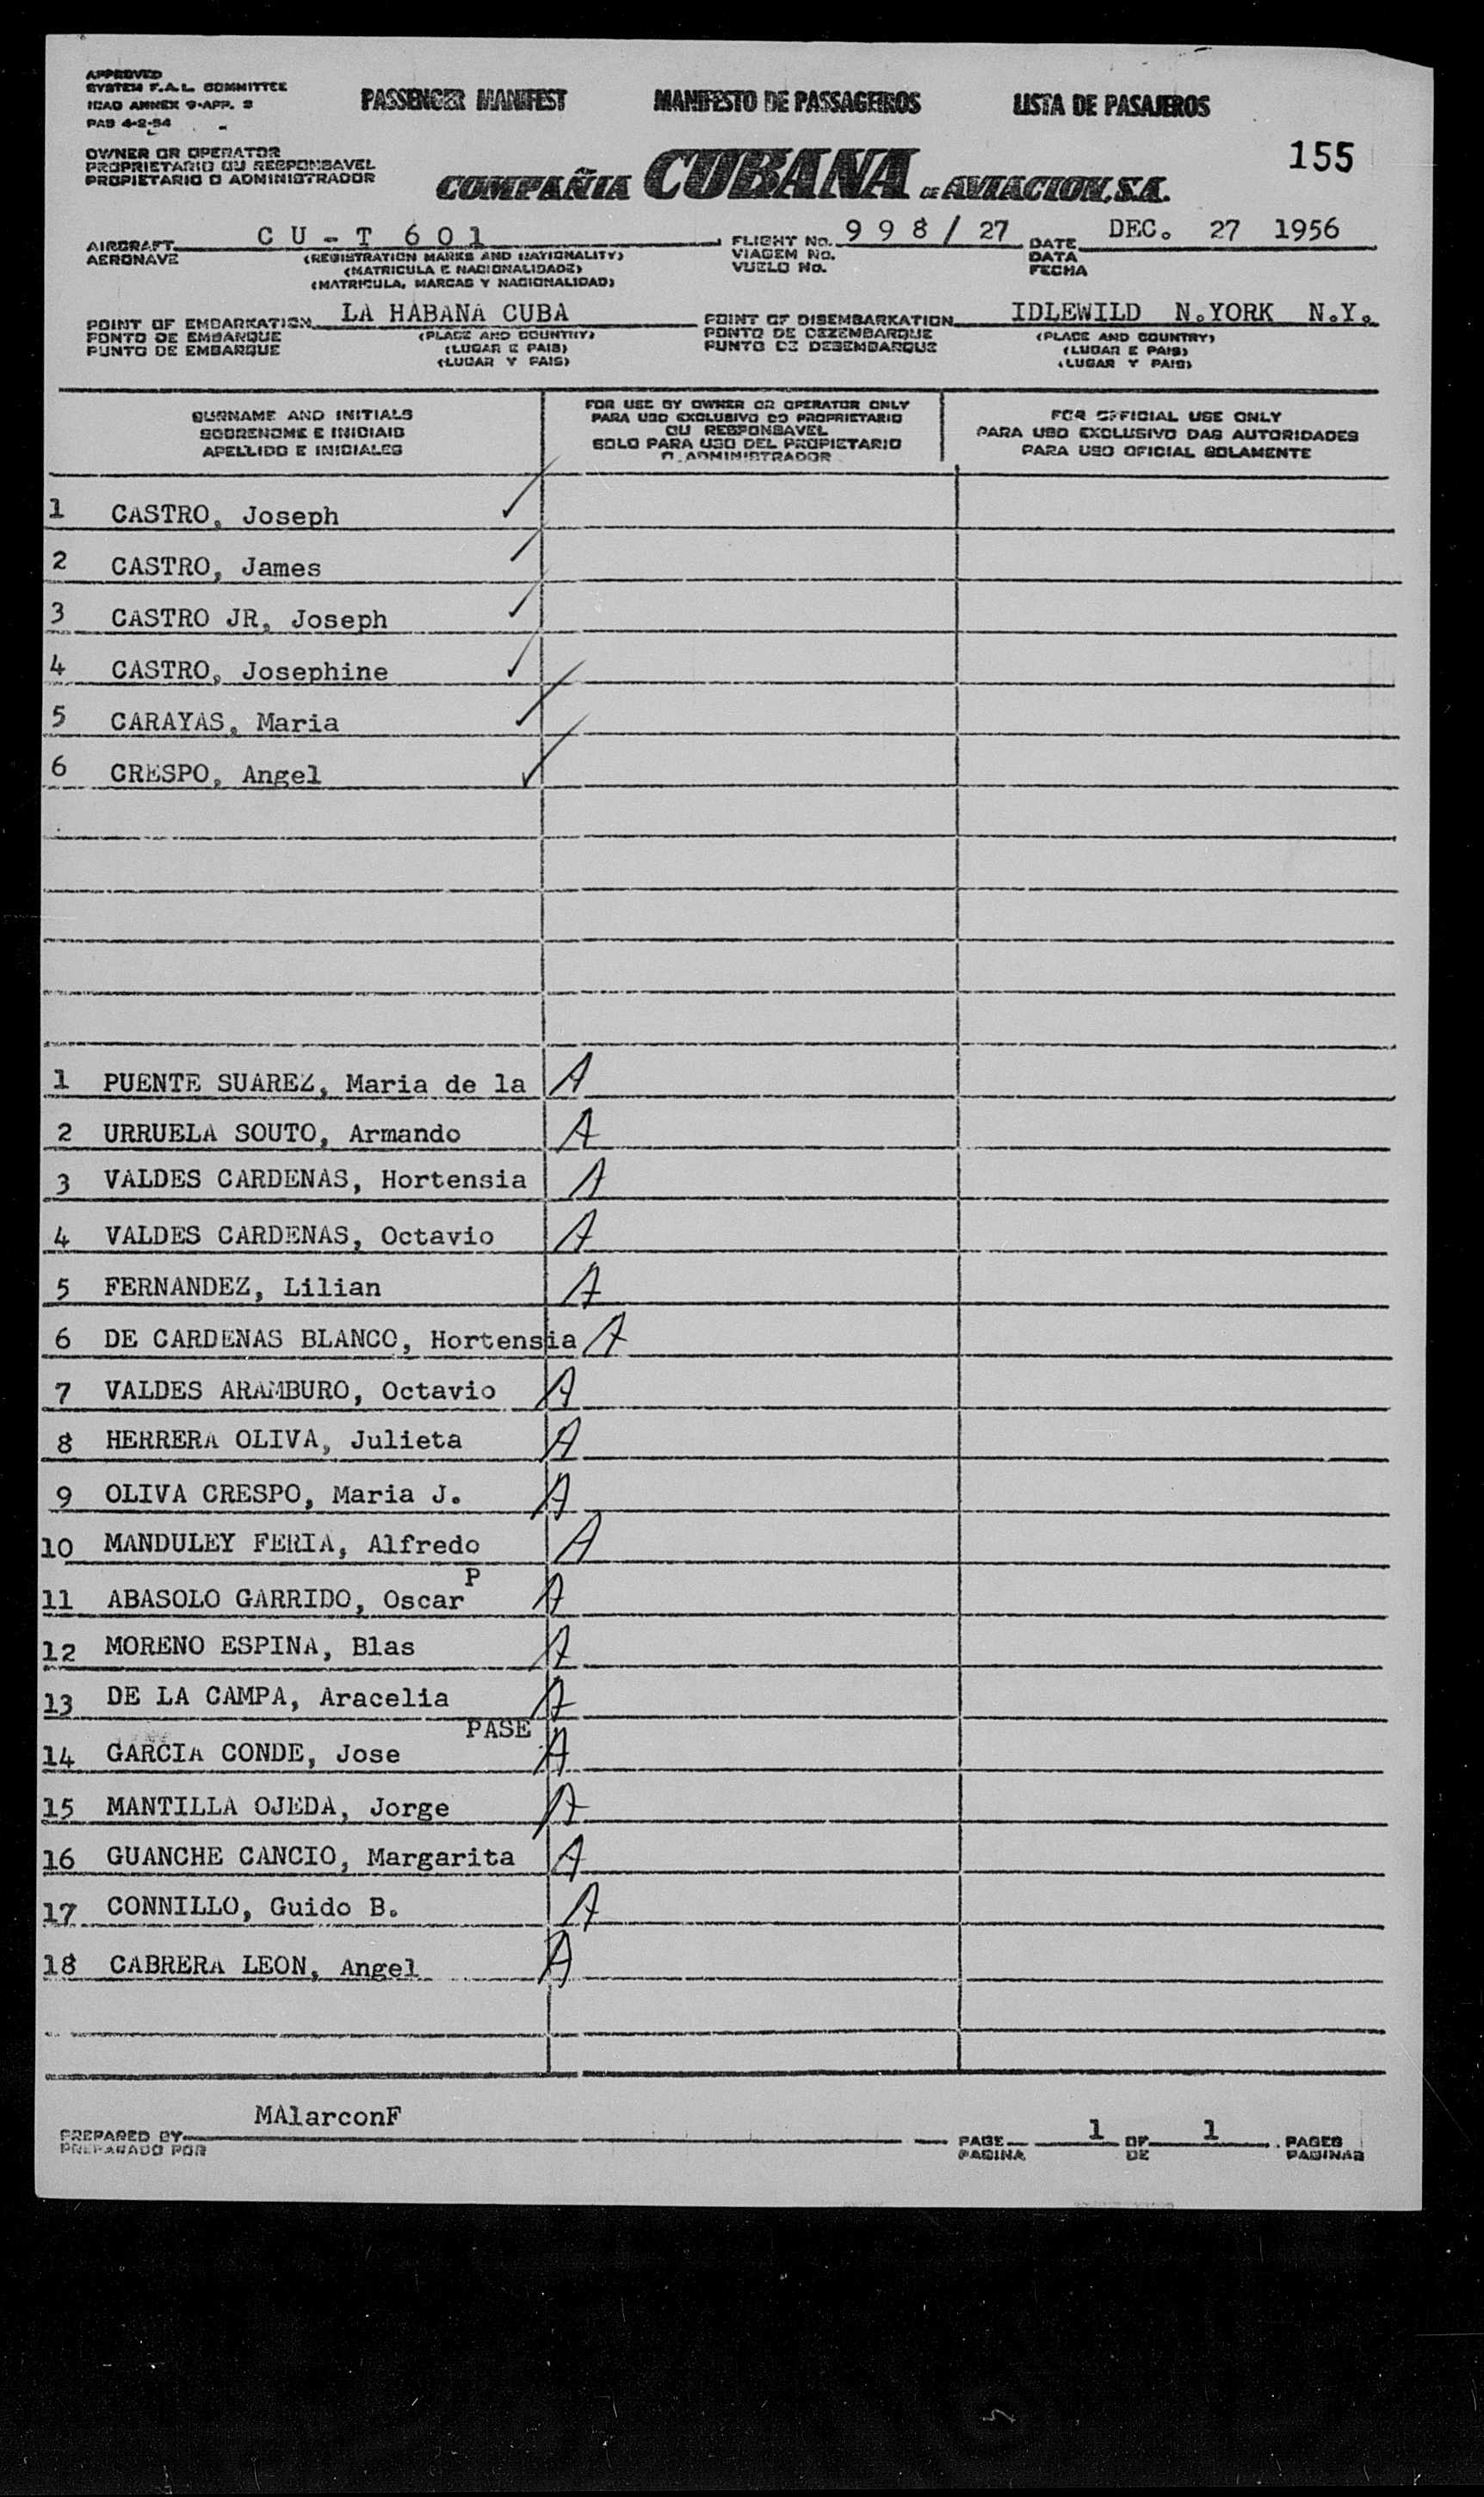 APPROVED
SYSTEM F.A.L. COMMITTEE
ICAO ANNEX 9-APP. 3
PAB 4-2-54
PASSENGER MANIFEST MANIFESTO DE PASSAGEIROS LISTA DE PASAJEROS
155
OWNER OR OPERATOR
PROPRIETARIO OU RESPONSAVEL
PROPIETARIO O ADMINISTRADOR
COMPAÑIA CUBANA DE AVIACION, S.A.
AIRCRAFT CU-T 601 FLIGHT No. 998/27 DATE DEC. 27 1956
AERONAVE (REGISTRATION MARKS AND NATIONALITY) VIAGEM No. DATA
(MATRICULA E NACIONALIDADE) VUELO No. FECHA
(MATRICULA, MARCAS Y NACIONALIDAD)
POINT OF EMBARKATION LA HABANA CUBA POINT OF DISEMBARKATION IDLEWILD N.YORK N.Y.
PONTO DE EMBARQUE (PLACE AND COUNTRY) PONTO DE DEZEMBARQUE (PLACE AND COUNTRY)
PUNTO DE EMBARQUE (LUGAR E PAIS) PUNTO DE DESEMBARQUE (LUGAR E PAIS)
(LUGAR Y PAIS) (LUGAR Y PAIS)
SURNAME AND INITIALS
SOBRENOME E INICIAIS
APELLIDO E INICIALES
FOR USE BY OWNER OR OPERATOR ONLY
PARA USO EXCLUSIVO DO PROPRIETARIO
OU RESPONSAVEL
SOLO PARA USO DEL PROPIETARIO
O ADMINISTRADOR
FOR OFFICIAL USE ONLY
PARA USO EXCLUSIVO DAS AUTORIDADES
PARA USO OFICIAL SOLAMENTE
1 CASTRO, Joseph ✓
2 CASTRO, James ✓
3 CASTRO JR, Joseph ✓
4 CASTRO, Josephine ✓
5 CARAYAS, Maria ✓
6 CRESPO, Angel ✓
1 PUENTE SUAREZ, Maria de la A
2 URRUELA SOUTO, Armando A
3 VALDES CARDENAS, Hortensia A
4 VALDES CARDENAS, Octavio A
5 FERNANDEZ, Lilian A
6 DE CARDENAS BLANCO, Hortensia A
7 VALDES ARAMBURO, Octavio A
8 HERRERA OLIVA, Julieta A
9 OLIVA CRESPO, Maria J. A
10 MANDULEY FERIA, Alfredo A
P
11 ABASOLO GARRIDO, Oscar A
12 MORENO ESPINA, Blas A
13 DE LA CAMPA, Aracelia A
PASE
14 GARCIA CONDE, Jose A
15 MANTILLA OJEDA, Jorge A
16 GUANCHE CANCIO, Margarita A
17 CONNILLO, Guido B. A
18 CABRERA LEON, Angel A
MAlarconF
PREPARED BY PAGE 1 OF 1 PAGES
PREPARADO POR PAGINA DE PAGINAS